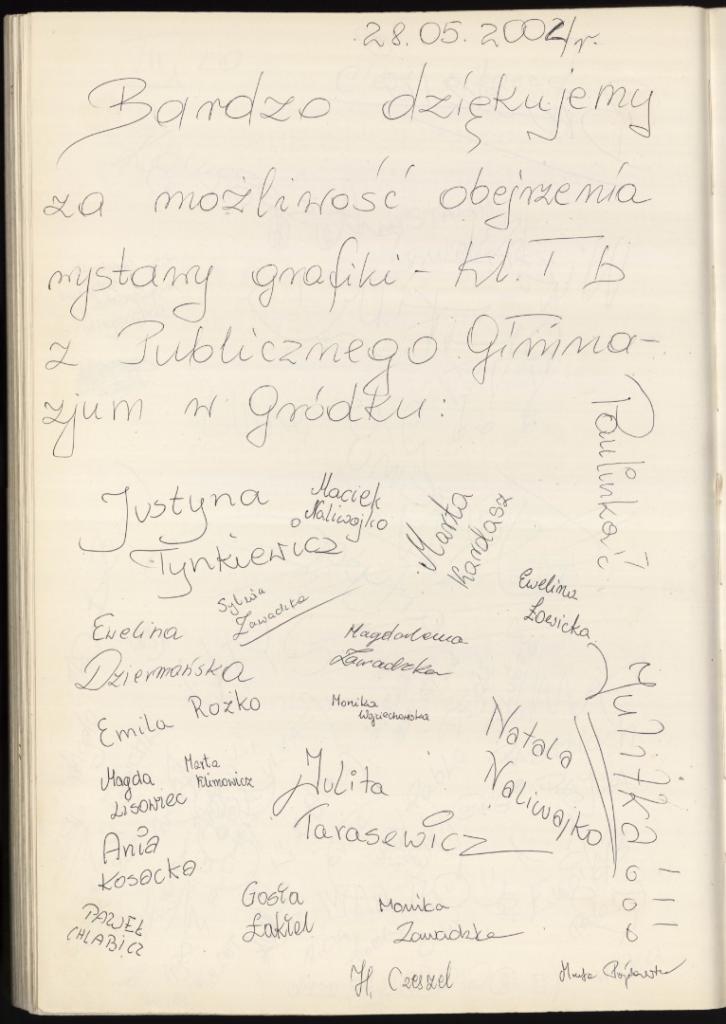 28.05.2002/r.
Bardzo dziękujemy
za możliwość obejrzenia
wystawy grafiki - kl. I b
z Publicznego Gimna-
zjum w Gródku:
Paulinka
Justyna
Tynkiewicz
Maciek
Naliwajko
Marta
Kardasz
Sylwia
Zawadzka
Ewelina
Łowicka
Ewelina
Dziermańska
Magdalena
Zawadzka
Emila Rożko
Monika
Wojciechowska
Natala
Naliwajko
Julitka!!!
Magda
Lisowiec
Marta
Klimowicz
Julita
Tarasewicz
Ania
Kosacka
PAWEŁ
CHLABICZ
Gosia
Łakiel
Monika
Zawadzka
H. Czeszel